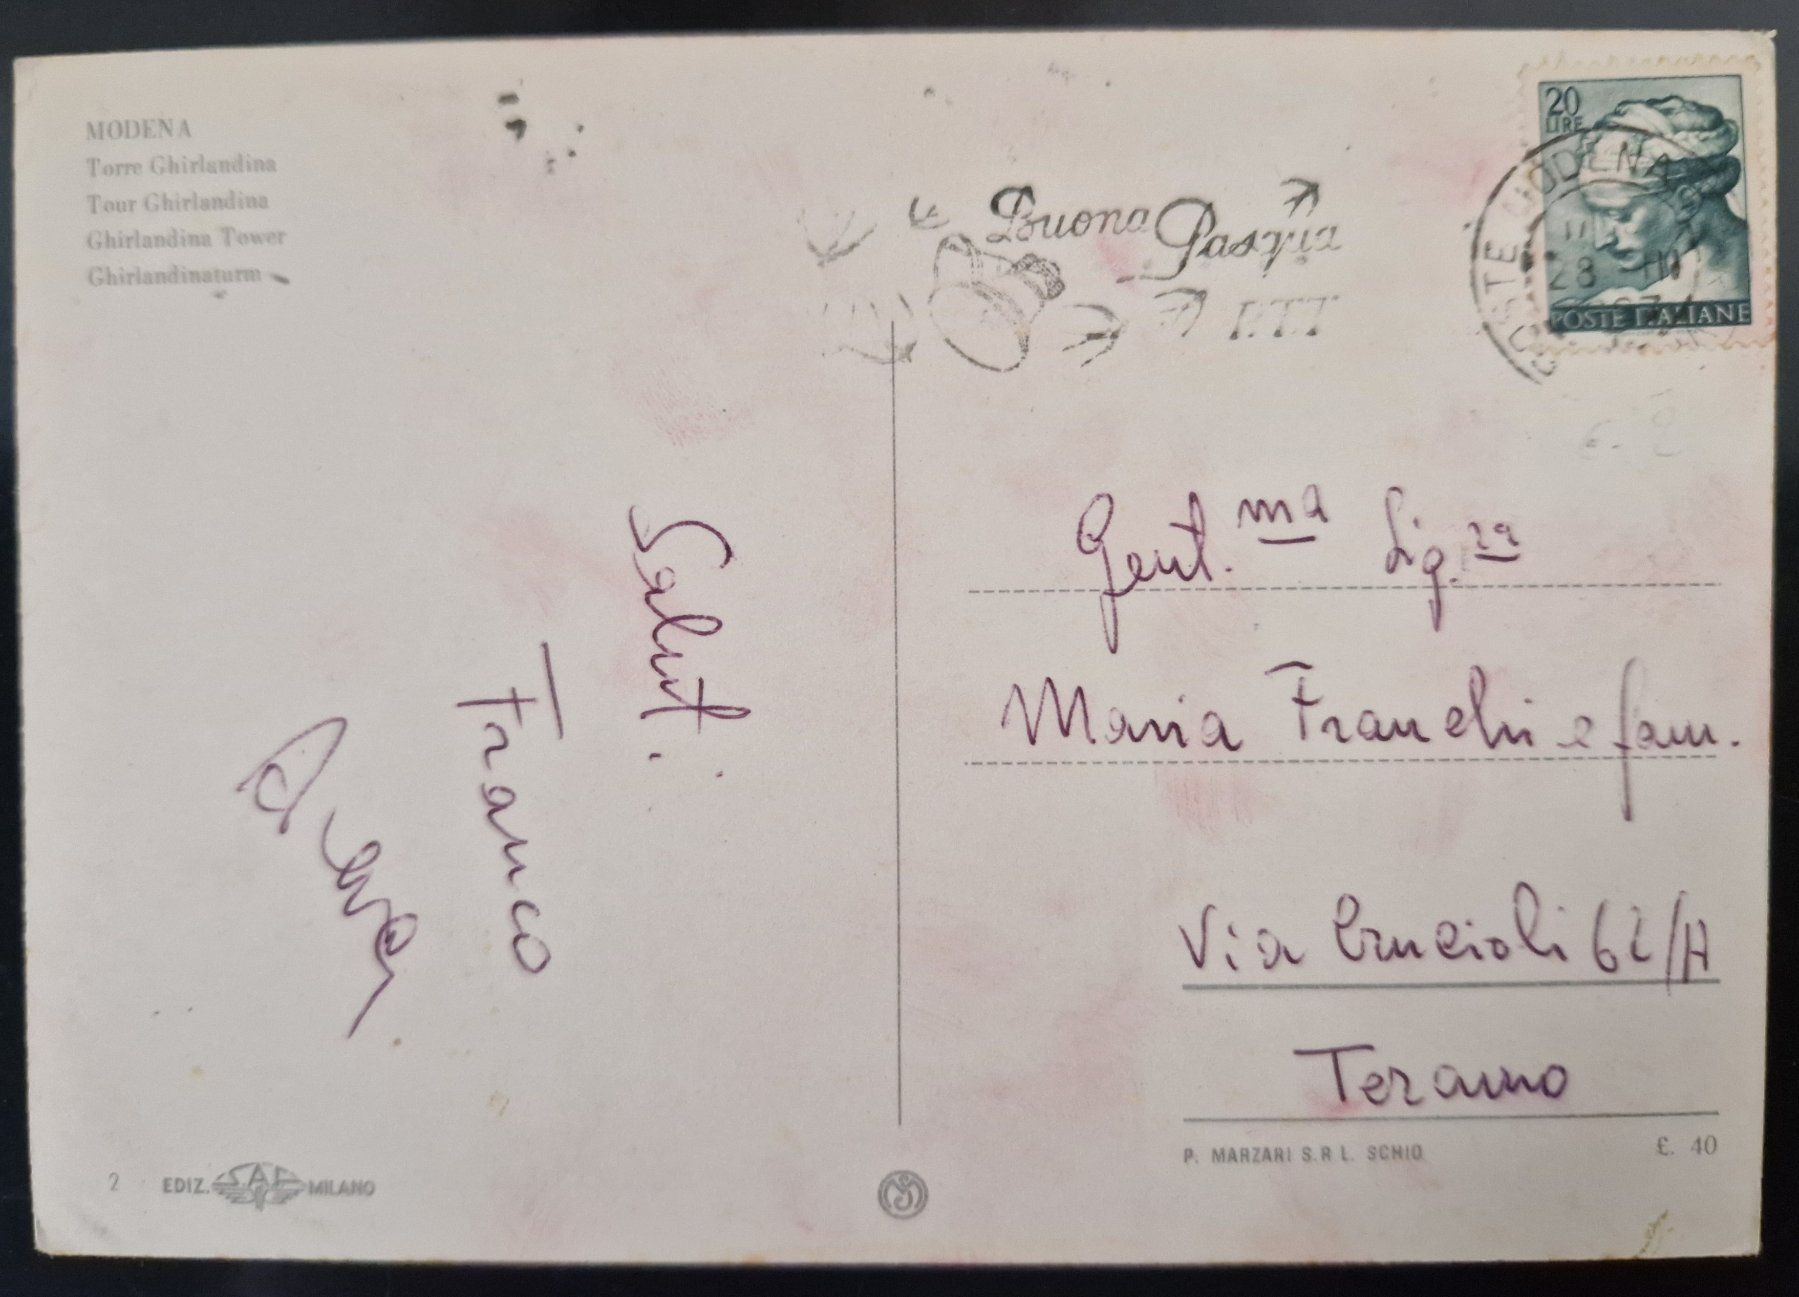 MODENA
Torre Ghirlandina
Tour Ghirlandina
Ghirlandina Tower
Ghirlandinaturm
Buona Pasqua
P.T.T.
20
LIRE
POSTE ITALIANE
POSTE MODENA
28 III
Saluti
Franco
Gent.ma Sig.ra
Maria Franchi e fam.
Via Crucioli 62/A
Teramo
2 EDIZ. S.A.F. MILANO
P. MARZARI S.R L. SCHIO £. 40